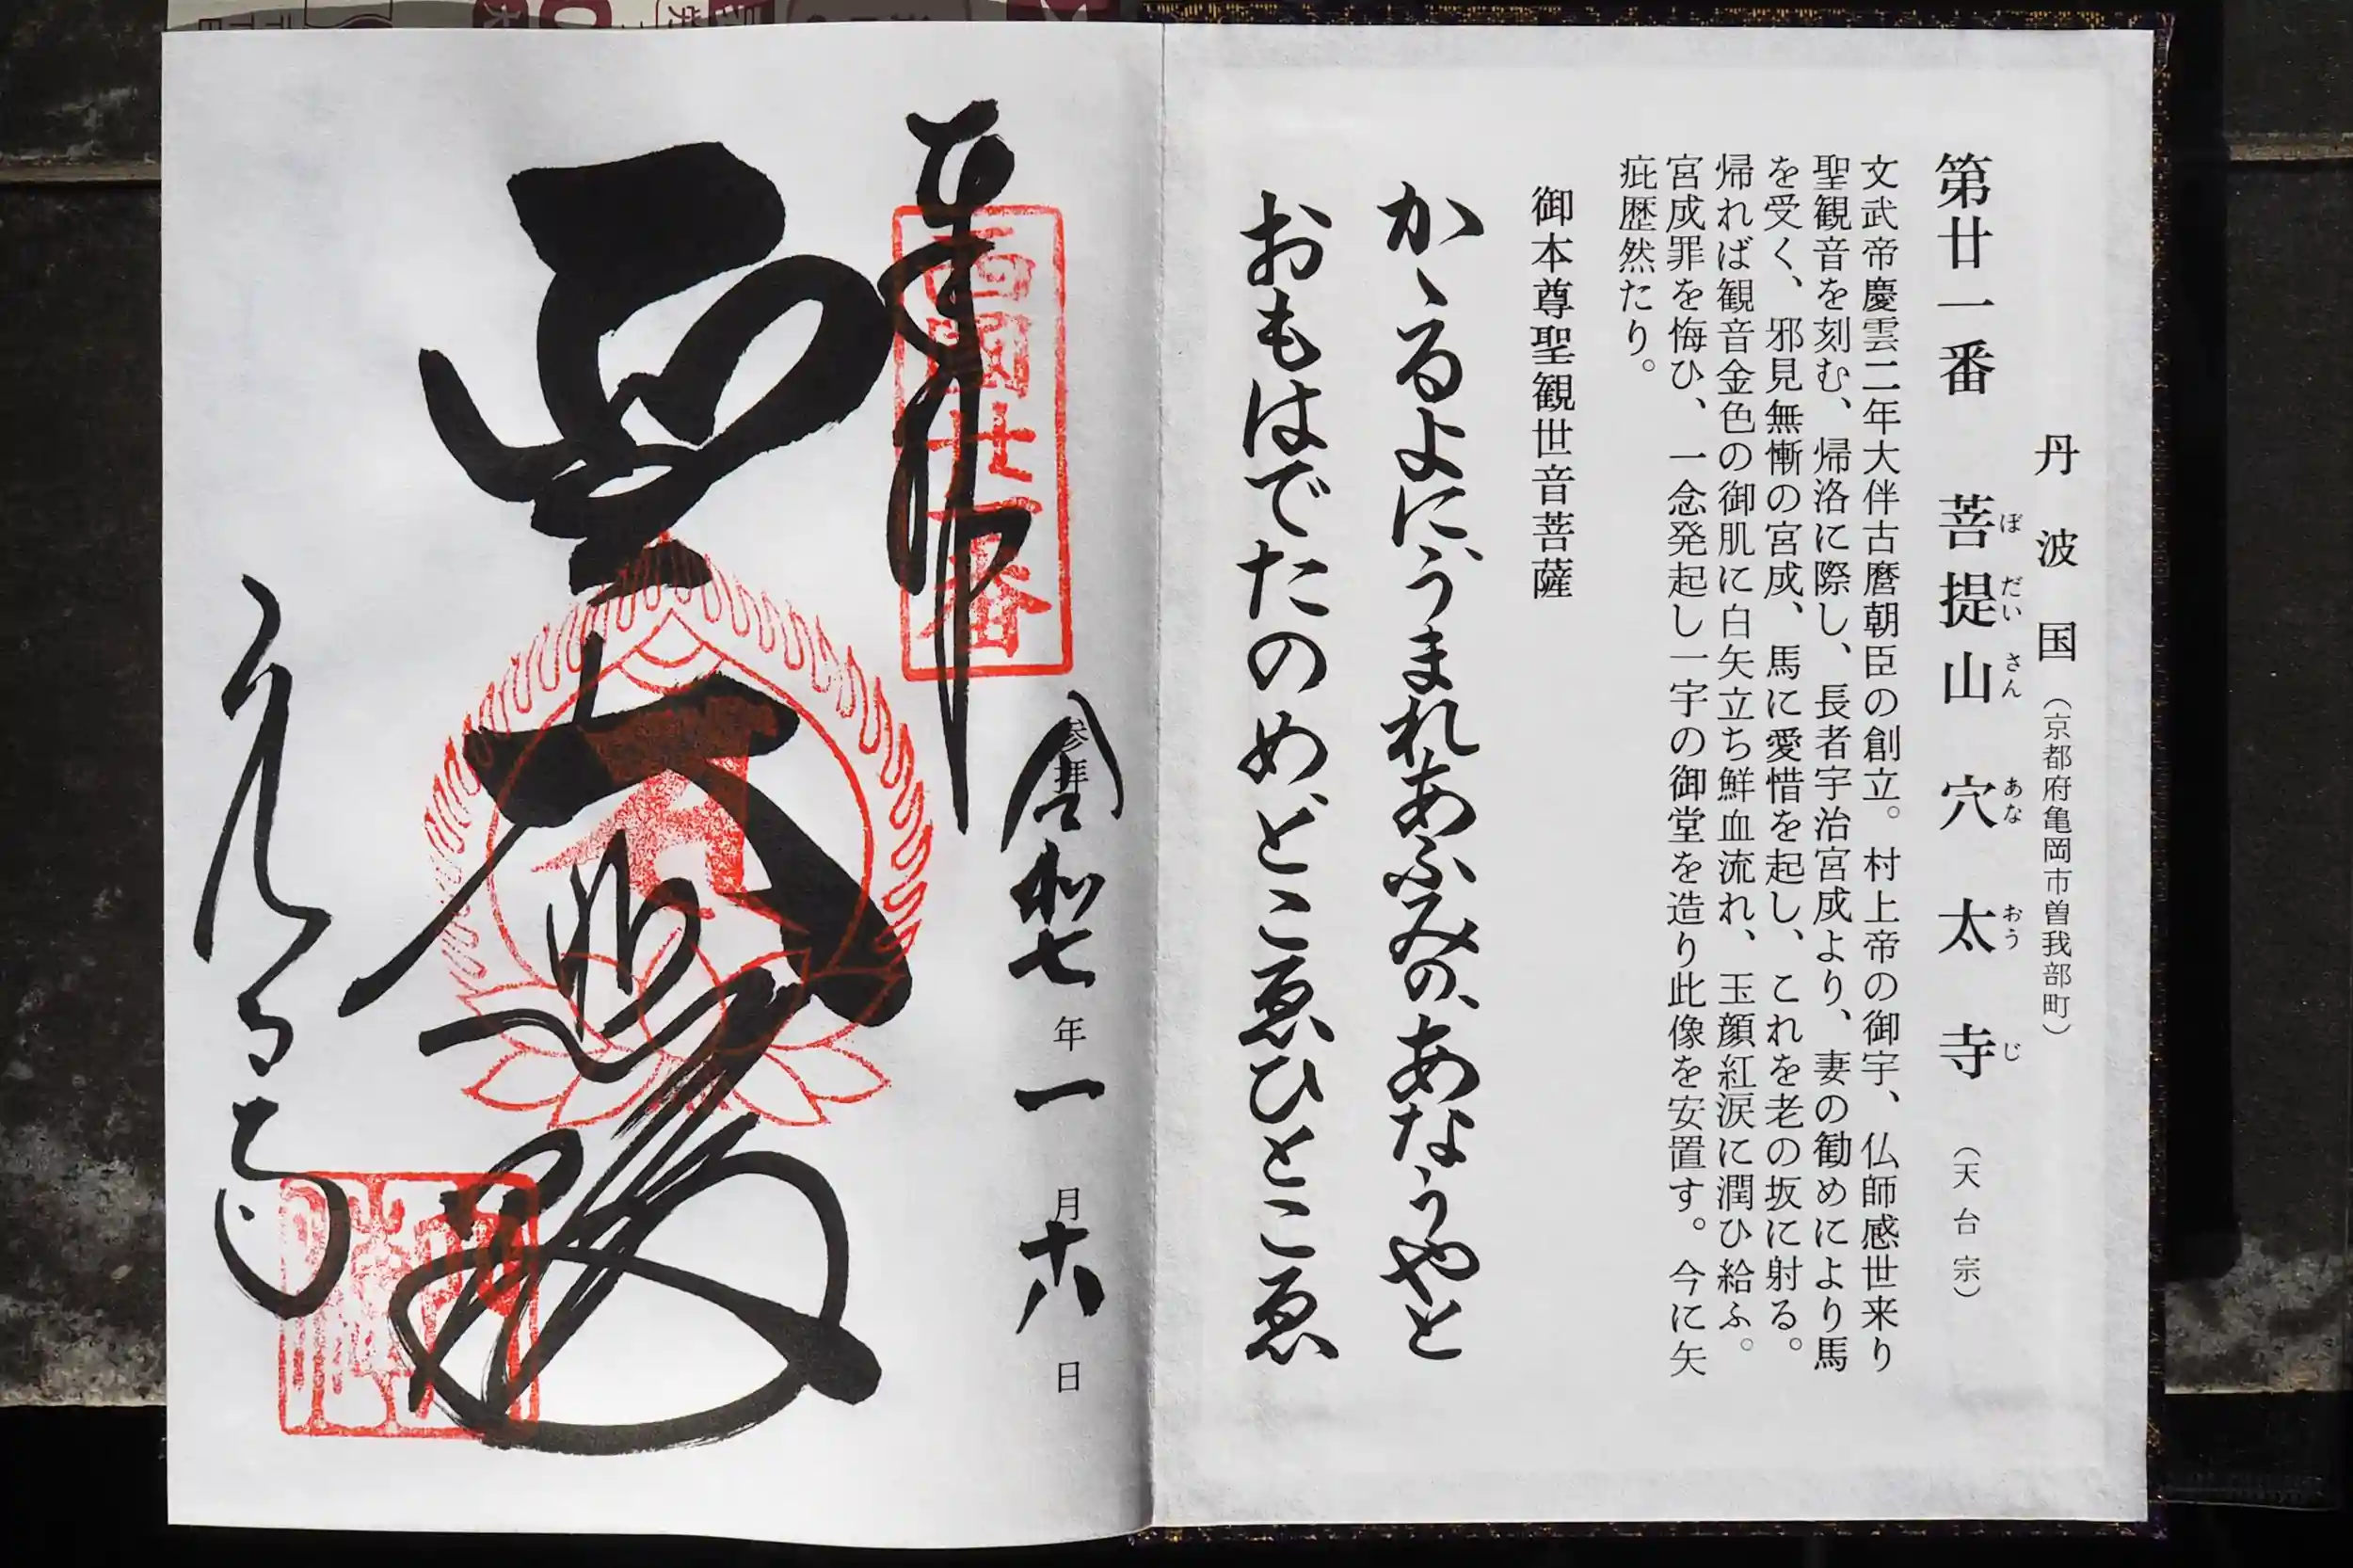 丹波国(京都府亀岡市曽我部町)
第廿一番 菩提山 穴太寺 (天台宗)
ぼだいさん あなおうじ
文武帝慶雲二年大伴古麿朝臣の創立。村上帝の御宇、仏師感世来り
聖観音を刻む、帰洛に際し、長者宇治宮成より、妻の勧めにより馬
を受く、邪見無慚の宮成、馬に愛惜を起し、これを老の坂に射る。
帰れば観音金色の御肌に白矢立ち鮮血流れ、玉顔紅涙に潤ひ給ふ。
宮成罪を悔ひ、一念発起し一宇の御堂を造り此像を安置す。今に矢
疵歴然たり。
御本尊聖観世音菩薩
かゝるよに、うまれあふみの、あなうやと
おもはでたのめ、どこゑひとこゑ
参拝
令和七年一月十八日
奉拝
西国廿一番
聖大悲殿
穴太寺